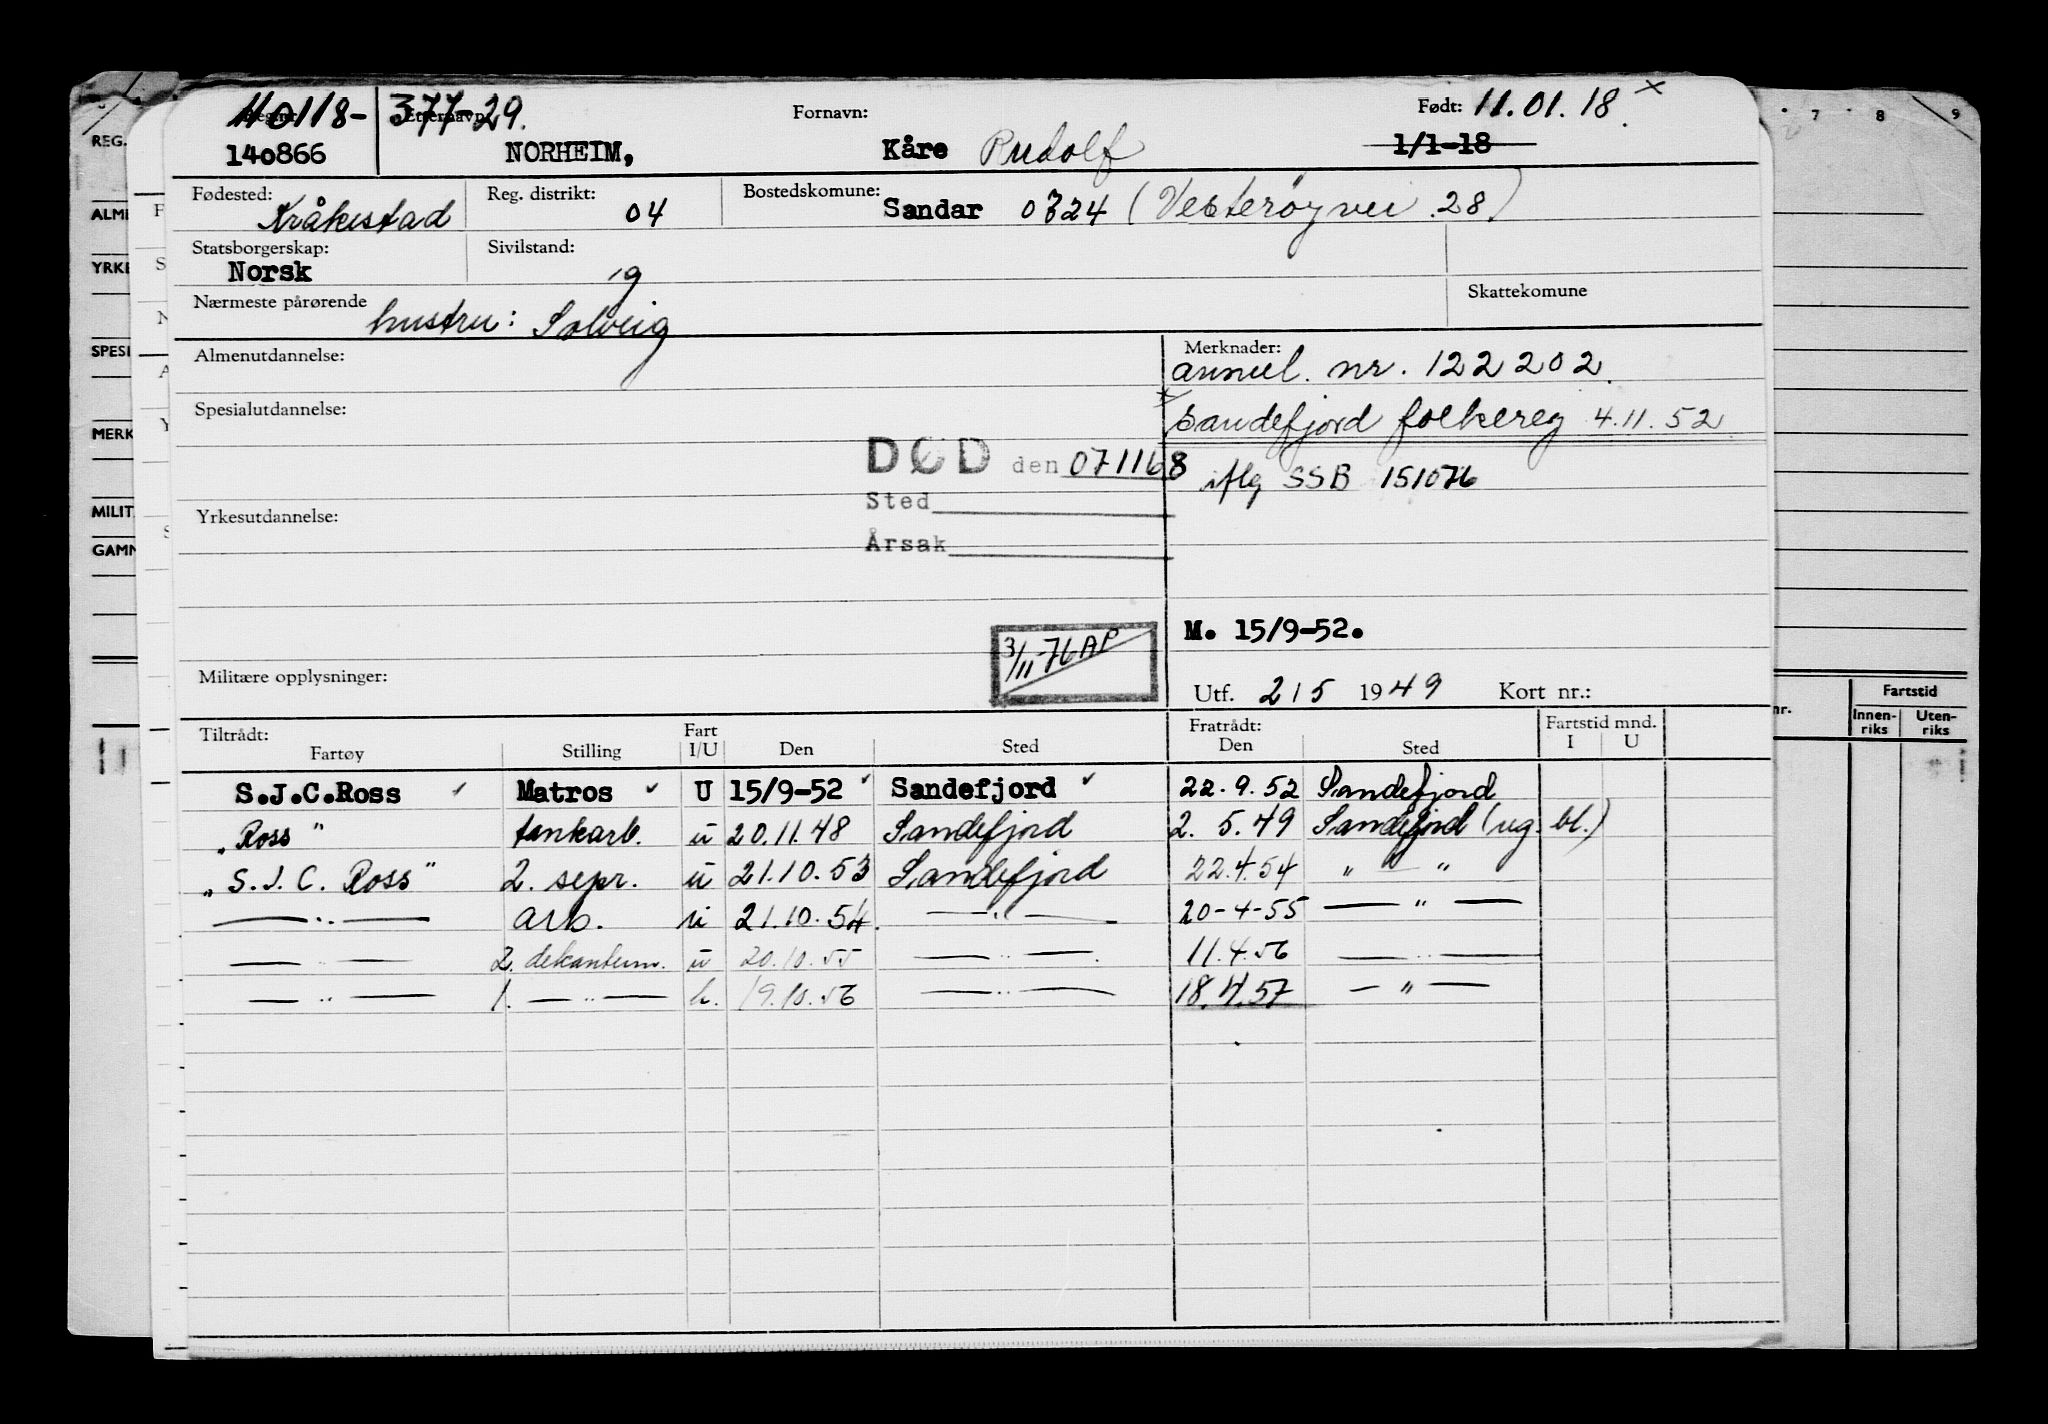 110118- 377-29. Fornavn: Født: 11.01.18 x
140866 NORHEIM, Kåre Rudolf 1/1-18
Fødested: Kråkestad Reg. distrikt: 04 Bostedskomune: Sandar 0724 (Vesterøyvei 28)
Statsborgerskap: Norsk Sivilstand: g
Nærmeste pårørende hustru: Solveig Skattekomune
Almenutdannelse: Merknader: annul. nr. 122202.
Spesialutdannelse: x Sandefjord folkereg 4.11.52
DØD den 071168 iflg SSB 151076
Sted
Yrkesutdannelse:
Årsak
M. 15/9-52.
3/11-76 AP
Militære opplysninger: Utf. 2/5 1949 Kort nr.:
Tiltrådt: Fart Fratrådt: Fartstid mnd.
Fartøy Stilling I/U Den Sted Den Sted I U
S.J.C.Ross Matros U 15/9-52 Sandefjord 22.9.52 Sandefjord
"Ross" tankarb. u 20.11.48 Sandefjord 2.5.49 Sandefjord (ug. bl.)
"S.J.C. Ross" 2. sepr. u 21.10.53 Sandefjord 22.4.54 " — "
— " — arb. u 21.10.54. — " — 20-4-55 — " —
— " — 2. dekanterm. u 20.10.55 — " — 11.4.56 — " —
— " — 1. — " — u. 19.10.56 — " — 18.4.57 — " —
REG.
ALME
YRKE
SPESI
MERK
MILIT
GAMM
7 8 9
nr. Fartstid
Innenriks Utenriks